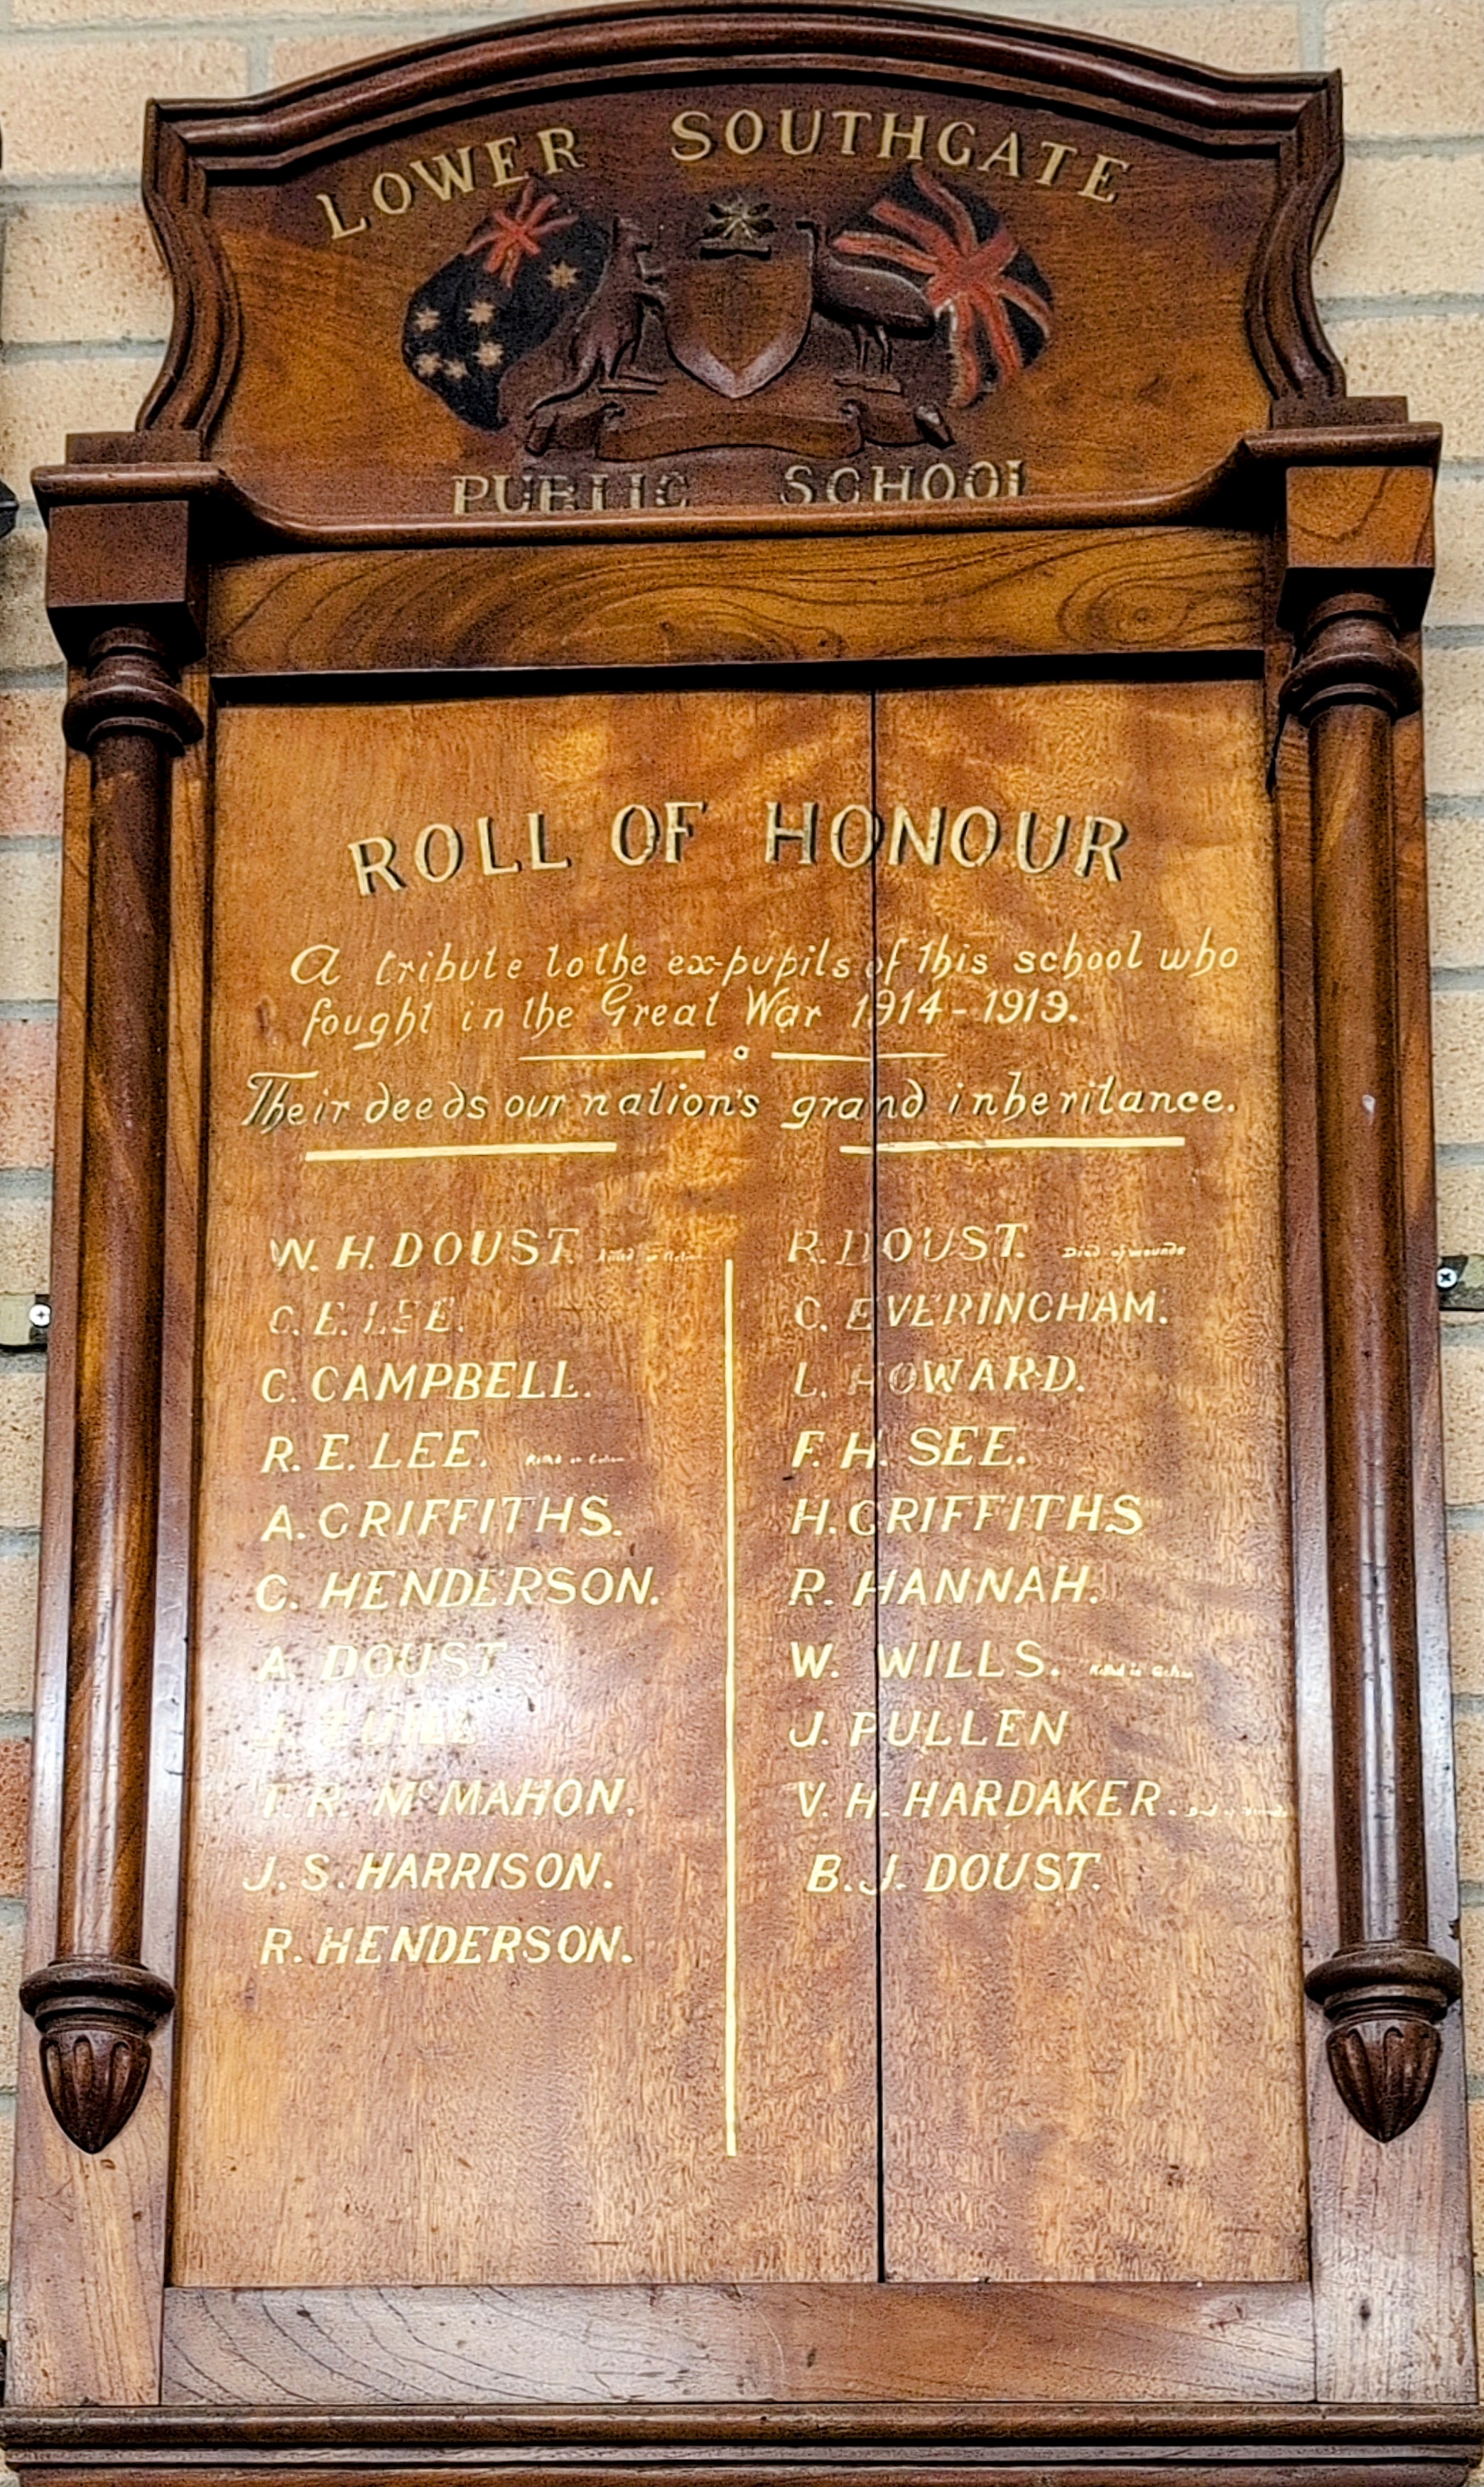 LOWER SOUTHGATE
PUBLIC SCHOOL
ROLL OF HONOUR
A tribute to the ex-pupils of this school who
fought in the Great War 1914-1919.
Their deeds our nation's grand inheritance.
W. H. DOUST. Killed in Action
C. E. LEE.
C. CAMPBELL.
R. E. LEE. Killed in Action
A. GRIFFITHS.
C. HENDERSON.
A. DOUST
T. R. McMAHON.
J. S. HARRISON.
R. HENDERSON.
R. DOUST. Died of wounds
C. EVERINGHAM.
L. HOWARD.
F. H. SEE.
H. GRIFFITHS
R. HANNAH.
W. WILLS. Killed in Action
J. PULLEN
V. H. HARDAKER.
B. J. DOUST.